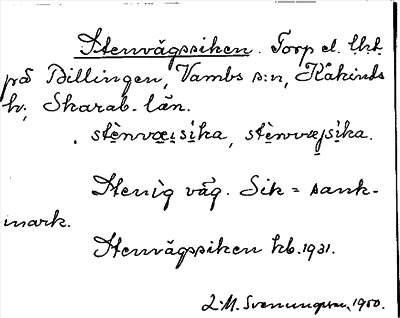 Stenvägssiken. Torp el. lht
på Billingen, Vambs s:n, Kåkinds
hd, Skarab. län.
. stènvæɪsika, stènvæjsika.
Stenig väg. Sik = sank-
mark.
Stenvägssiken kb. 1931.
L.M. Svenungsson, 1950.